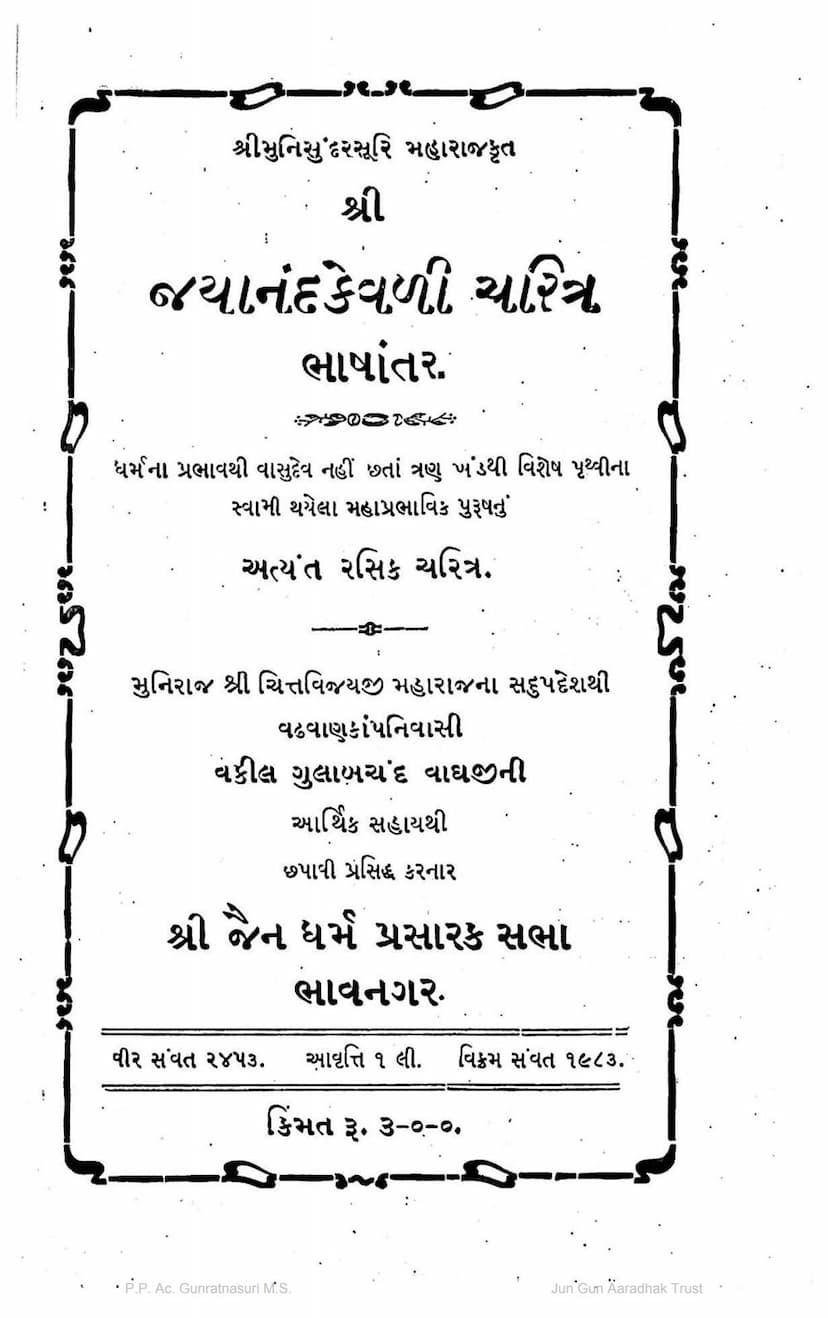 શ્રીમુનિસુંદરસૂરિ મહારાજકૃત
શ્રી
જયાનંદકેવળી ચરિત્ર
ભાષાંતર.
ધર્મના પ્રભાવથી વાસુદેવ નહીં છતાં ત્રણ ખંડથી વિશેષ પૃથ્વીના
સ્વામી થયેલા મહાપ્રભાવિક પુરૂષનું
અત્યંત રસિક ચરિત્ર.
મુનિરાજ શ્રી ચિત્તવિજયજી મહારાજના સદુપદેશથી
વઢવાણકાંપનિવાસી
વકીલ ગુલાબચંદ વાઘજીની
આર્થિક સહાયથી
છપાવી પ્રસિદ્ધ કરનાર
શ્રી જૈન ધર્મ પ્રસારક સભા
ભાવનગર.
વીર સંવત ૨૪૫૩. આવૃત્તિ ૧ લી. વિક્રમ સંવત ૧૯૮૩.
કિંમત રૂ. ૩-૦-૦.
P.P. Ac. Gunratnasuri M.S. Jun Gun Aaradhak Trust